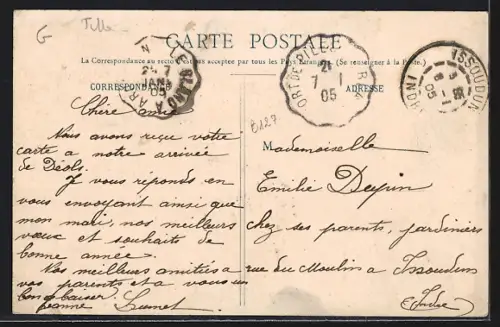 G
CARTE POSTALE
La Correspondance au recto n'est pas acceptée par tous les Pays Étrangers. (Se renseigner à la Poste.)
CORRESPONDANCE
ADRESSE
JANV
05
21
7 - 1
05
ISSOUDUN
8 - 1
05
B127
Chère amie
Nous avons reçue votre
carte a notre arrivée
de Déols.
Je vous réponds en
vous envoyant ainsi que
mon mari, nos meilleurs
vœux et souhaits de
bonne année.
Nos meilleurs amitiés a
vos parents et a vous un
bon baiser.
Jeanne
Mademoiselle
Emilie
chez ses parents, jardiniers
rue du Moulin a Issoudun
Indre